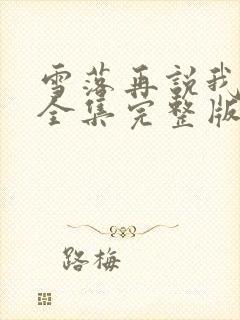 雪落再説我
全集完整版
路梅